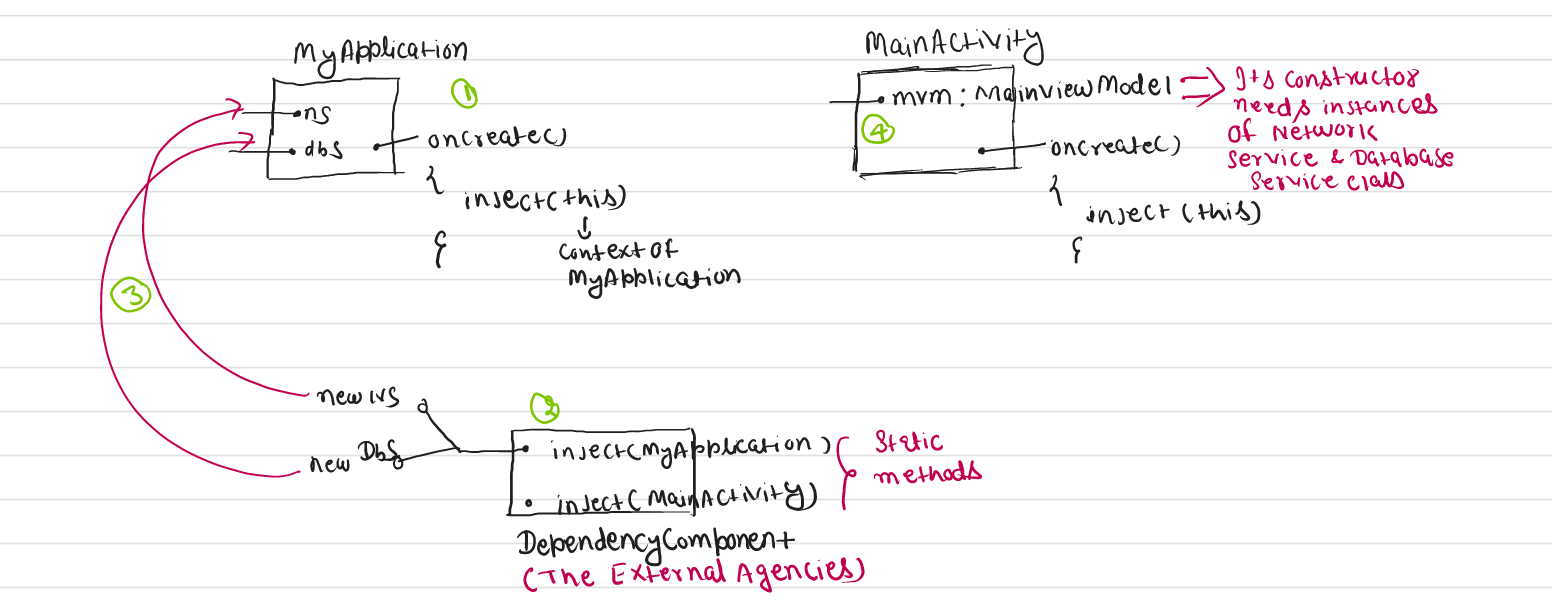 MyApplication
①
ns
dbs
oncreate()
{
inject(this)
Context of
MyApplication
}
MainActivity
mvm : MainViewModel ⇒ Its constructor
needs instances
of Network
Service & Database
Service class
④
oncreate()
{
inject (this)
}
③
new NS
new DbS
②
inject(MyApplication)
inject(MainActivity)
Static
methods
DependencyComponent
(The External Agencies)